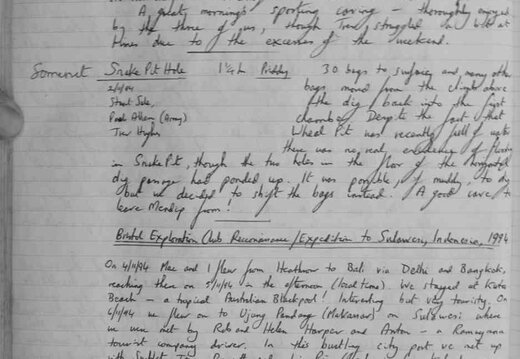 A great morning's sporting caving - thoroughly enjoyed
by the three of us, though Trev struggled a bit at
times due to the excesses of the weekend.
Somerset Snake Pit Hole 1¼h Priddy 30 bags to surface and many other
2/11/94 bags moved from the climb above
the dig back into the first
chamber. Despite the fact that
Trev Hughes Wheel Pit was recently full of water
there was no real evidence of flooding
in Snake Pit, though the two holes in the floor of the horizontal
dig passage had ponded up. It was possible, if muddy, to dig
but we decided to shift the bags instead. A good cave to
leave Mendip from!
Bristol Exploration Club Reconnaissance/Expedition to Sulawesi, Indonesia, 1994
On 4/11/94 Mac and I flew from Heathrow to Bali via Delhi and Bangkok,
reaching there on 5/11/94 in the afternoon (local time). We stayed at Kuta
Beach - a typical Australian Blackpool! Interesting but very touristy. On
6/11/94 we flew on to Ujung Pandang (Makassar) on Sulawesi where
we were met by Rob and Helen Harper and Anton - a Ramayana
tourist company driver. In this bustling city port we met up
with